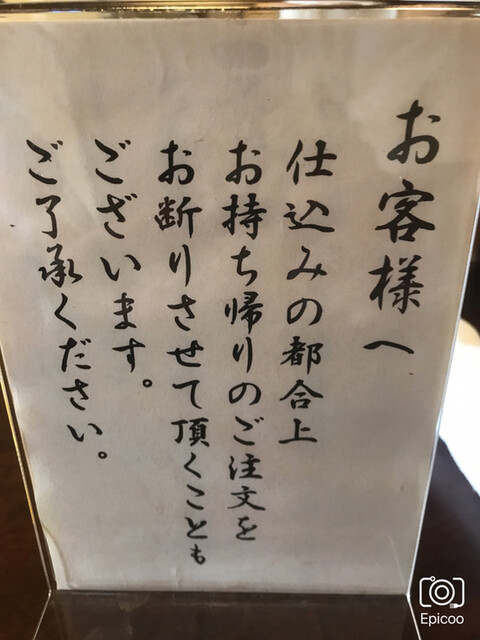 お客様へ
仕込みの都合上
お持ち帰りのご注文を
お断りさせて頂くことも
ございます。
ご了承ください。
Epicoo